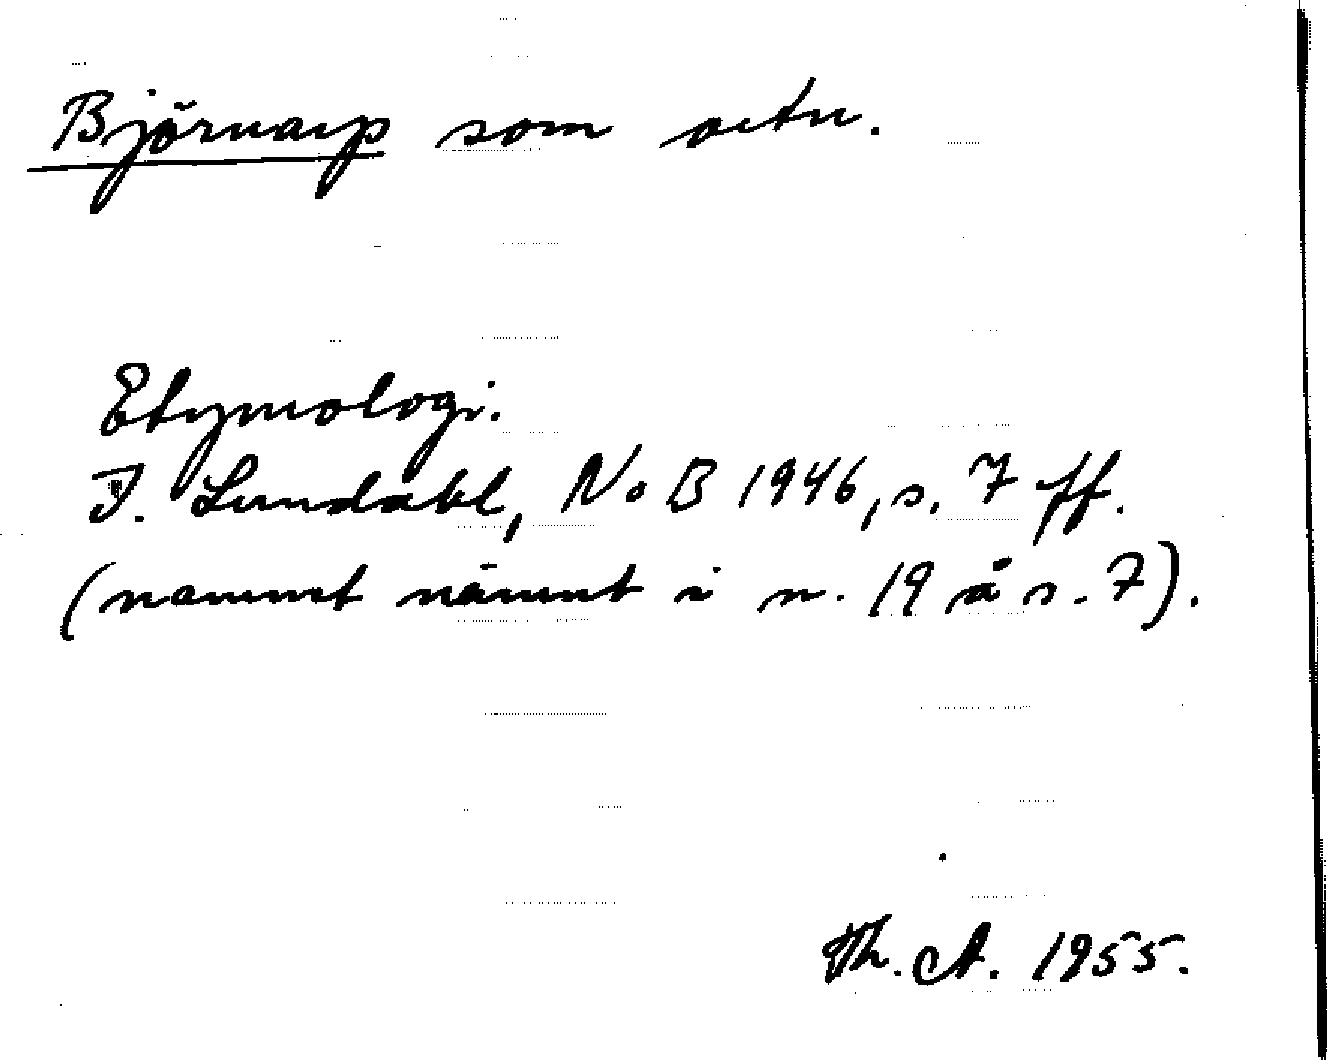 Björnarp som ortn.
Etymologi.
I. Lundahl, NoB 1946, s. 7 ff.
(namnet nämnt i n. 19 å s. 7).
Th. A. 1955.